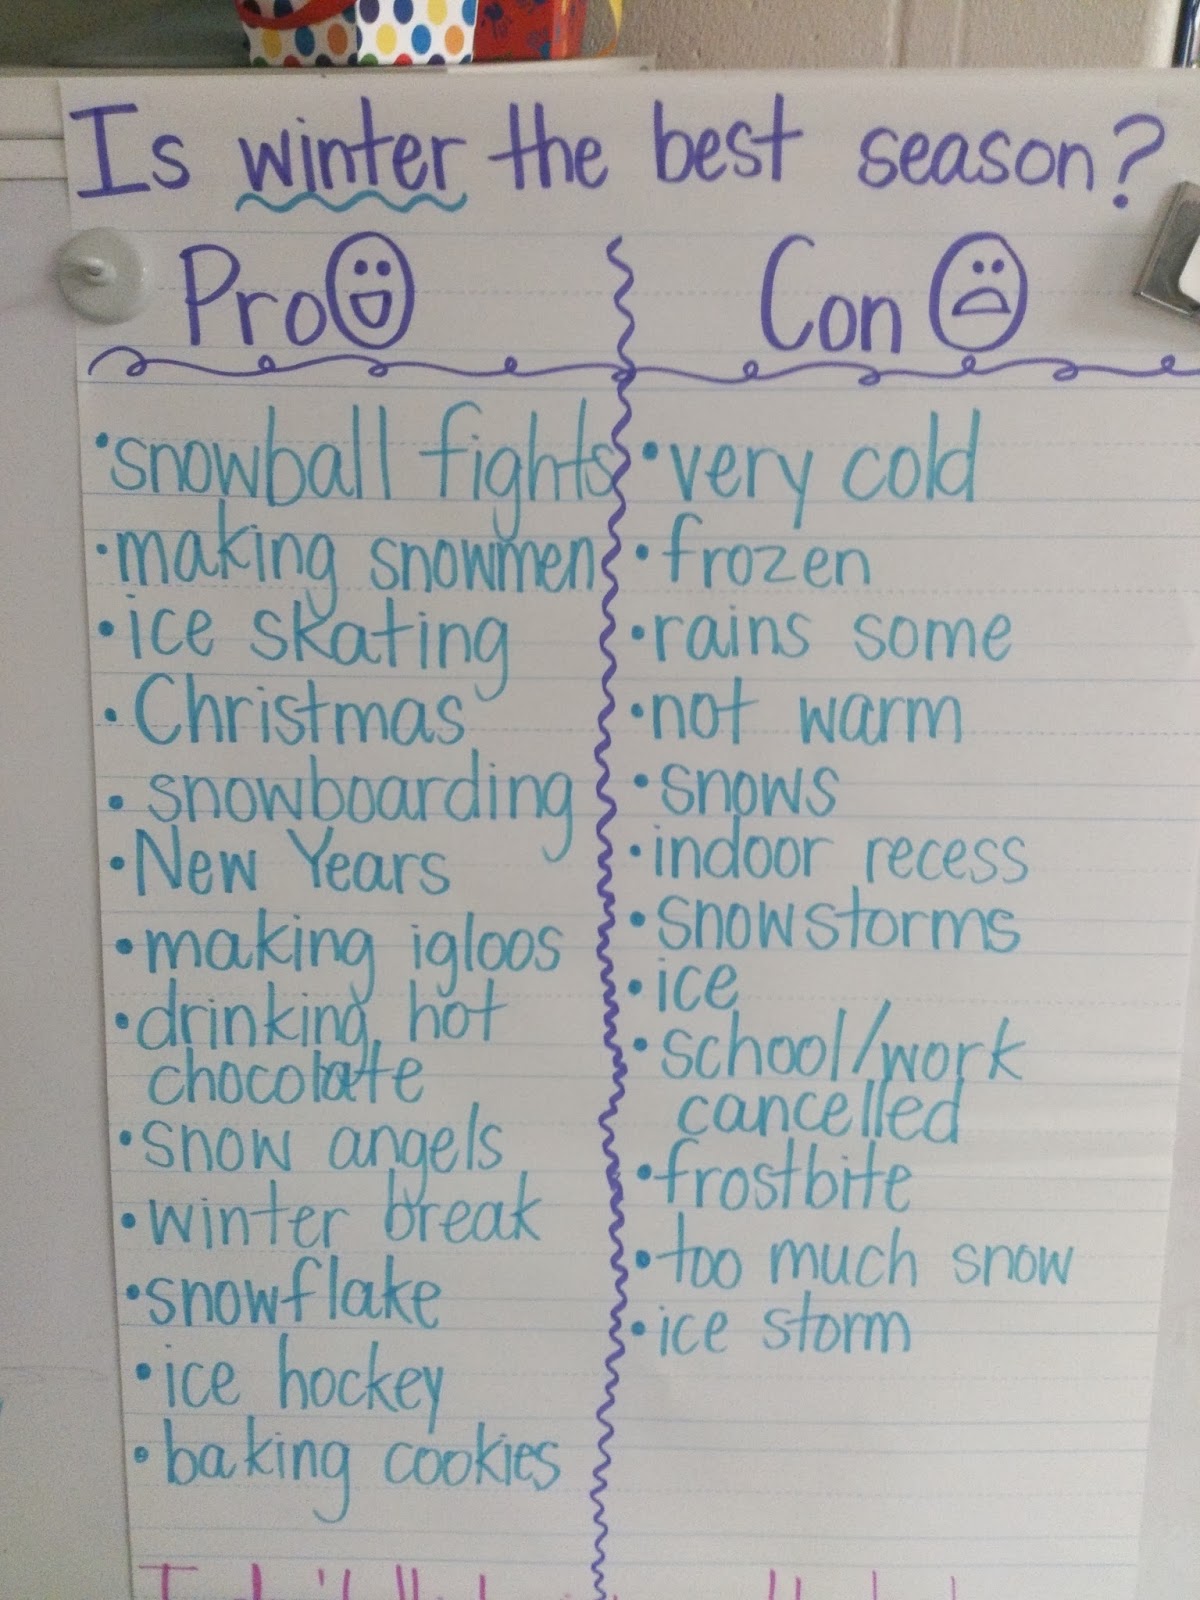 Is winter the best season?
Pro
Con
•snowball fights
•making snowmen
•ice skating
•Christmas
•snowboarding
•New Years
•making igloos
•drinking hot
chocolate
•snow angels
•winter break
•snowflake
•ice hockey
•baking cookies
•very cold
•frozen
•rains some
•not warm
•snows
•indoor recess
•snowstorms
•ice
•school/work
cancelled
•frostbite
•too much snow
•ice storm